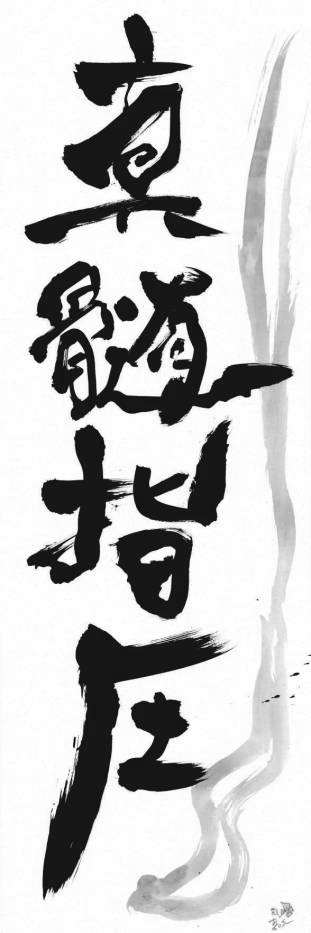 真髄指圧